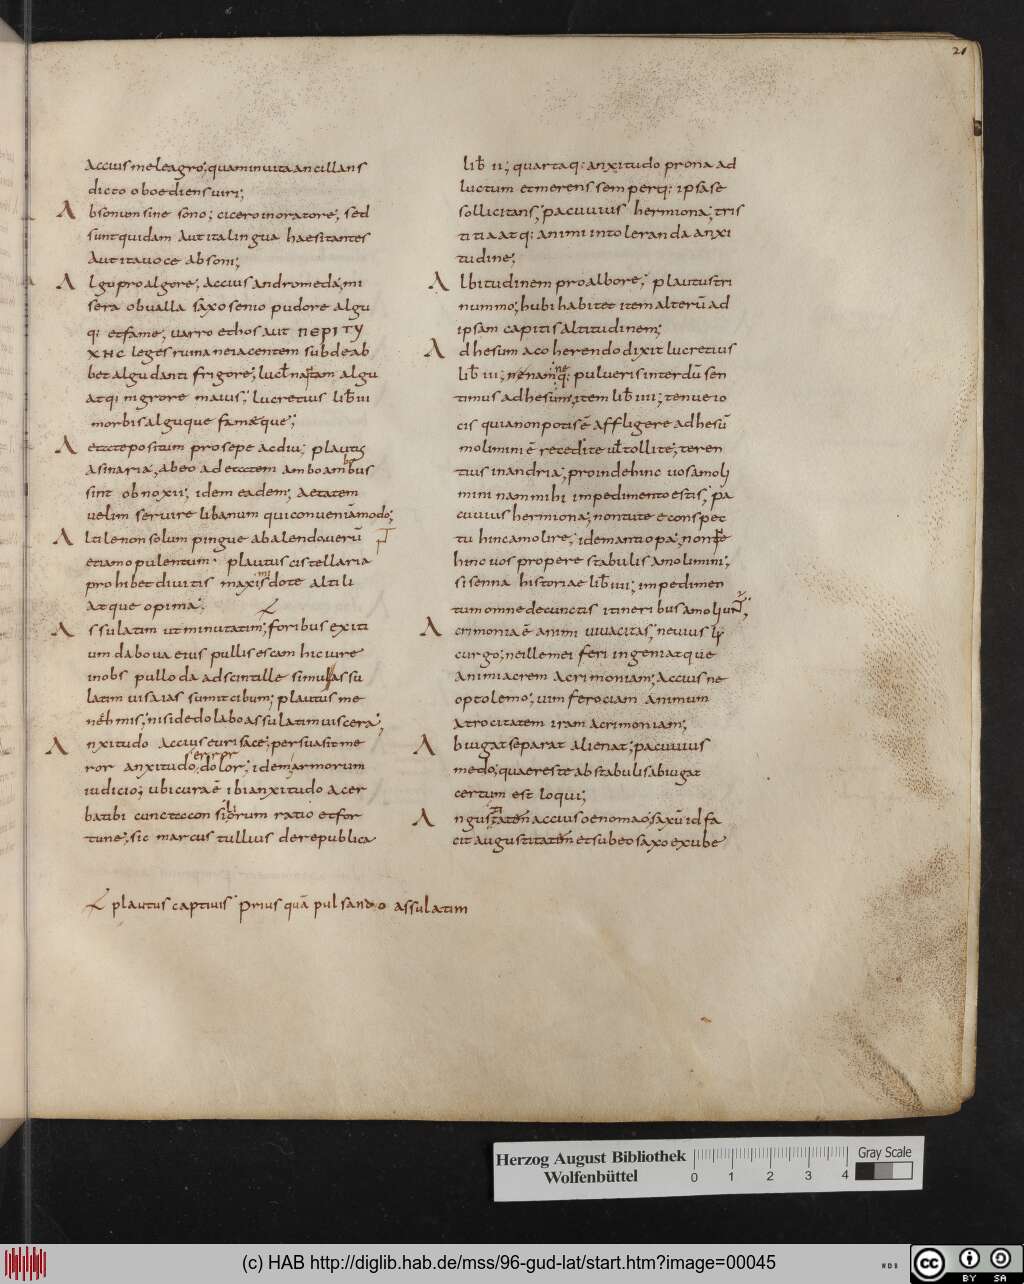 21
Accius meleagro; quam inuita ancillans
dicto oboediens uiri;
Absonum sine sono; cicero in oratore; sed
sunt quidam aut ita lingua haesitantes
aut ita uoce absoni;
Algu pro algore; accius andromeda; mi
sera obualla saxo senio pudore algu
q; et fame; uarro ethos aut ΠΕΡΙ ΤΥ
ΧΗC leges ruina neiacentem sub dea b
bet algu danti frigore; lucł natam algu
atq; nigrore maius; lucretius lib̄ iii
morbis alguque fameque;
 pro sepe ac diu; plautus
asinaria, abeo ad ambo ambus
sint obnoxii; idem eadem; aetatem
uelim seruire libanum qui conueniā modo;
Altile non solum pingue ab alendo uerū
etiam opulentum; plautus cistellaria
prohibet diuitis maximis dote altili
atque opima;
Assulatim ut minutatim; foribus exiti
um dabo ua eius pullis escam hic iure
inobs pullo da adscintille simul assu
latim uisaias sumit cibum; plautus me
nehmis; nisi dedolabo assulatim uiscera;
Anxitudo accius eurisace; persuasit me
error
ror anxitudo, dolor; idem armorum
iudicio; ubi cura ē ibi anxitudo acer
batibi con siorum ratio et for
tune; sic marcus tullius de republica
plautus captiuis prius quā pulsando assulatim
lib̄ ii; quarta q; anxitudo prona ad
luctum et merens semperq; ipsa se
sollicitans; pacuuius hermiona; tris
titia atq; animi intoleranda anxi
tudine;
Albitudinem pro albore; plautus tri
nummo; hubi habitet item alterū ad
ipsam capitis altitudinem;
Adhesum a coherendo dixit lucretius
lib̄ iii; nenamq; pulueris interdū sen
timus adhesum; item lib̄ iiii; tenue io
cis quia non potis ē affligere adhesū
molimini ē recedite uł tollite; teren
tius in andria; proinde hinc uos amoli
mini nam mihi impedimento estis; pa
cuuius hermiona; non tu te e conspec
tu hinc amolire; idem antiopa; non te
hinc uos propere stabulis amolimini;
sisenna historiae lib̄ iiii; impedimen
tum omne de cunctis itineribus amoliunt;
Acrimonia ē animi uiuacitas; neuius ly
curgo; ne ille mei feri ingeni atque
animi acrem acrimoniam; accius ne
optolemo; uim ferociam animum
atrocitatem iram acrimoniam;
Abiugat separat alienat; pacuuius
medo; quae res te ab stabulis abiugat
certum est loqui;
Angustatem accius oenomao; saxū id fa
cit augustitatem et sub eo saxo exube
Herzog August Bibliothek
Wolfenbüttel
0 1 2 3 4
Gray Scale
(c) HAB http://diglib.hab.de/mss/96-gud-lat/start.htm?image=00045
WDB
cc BY SA